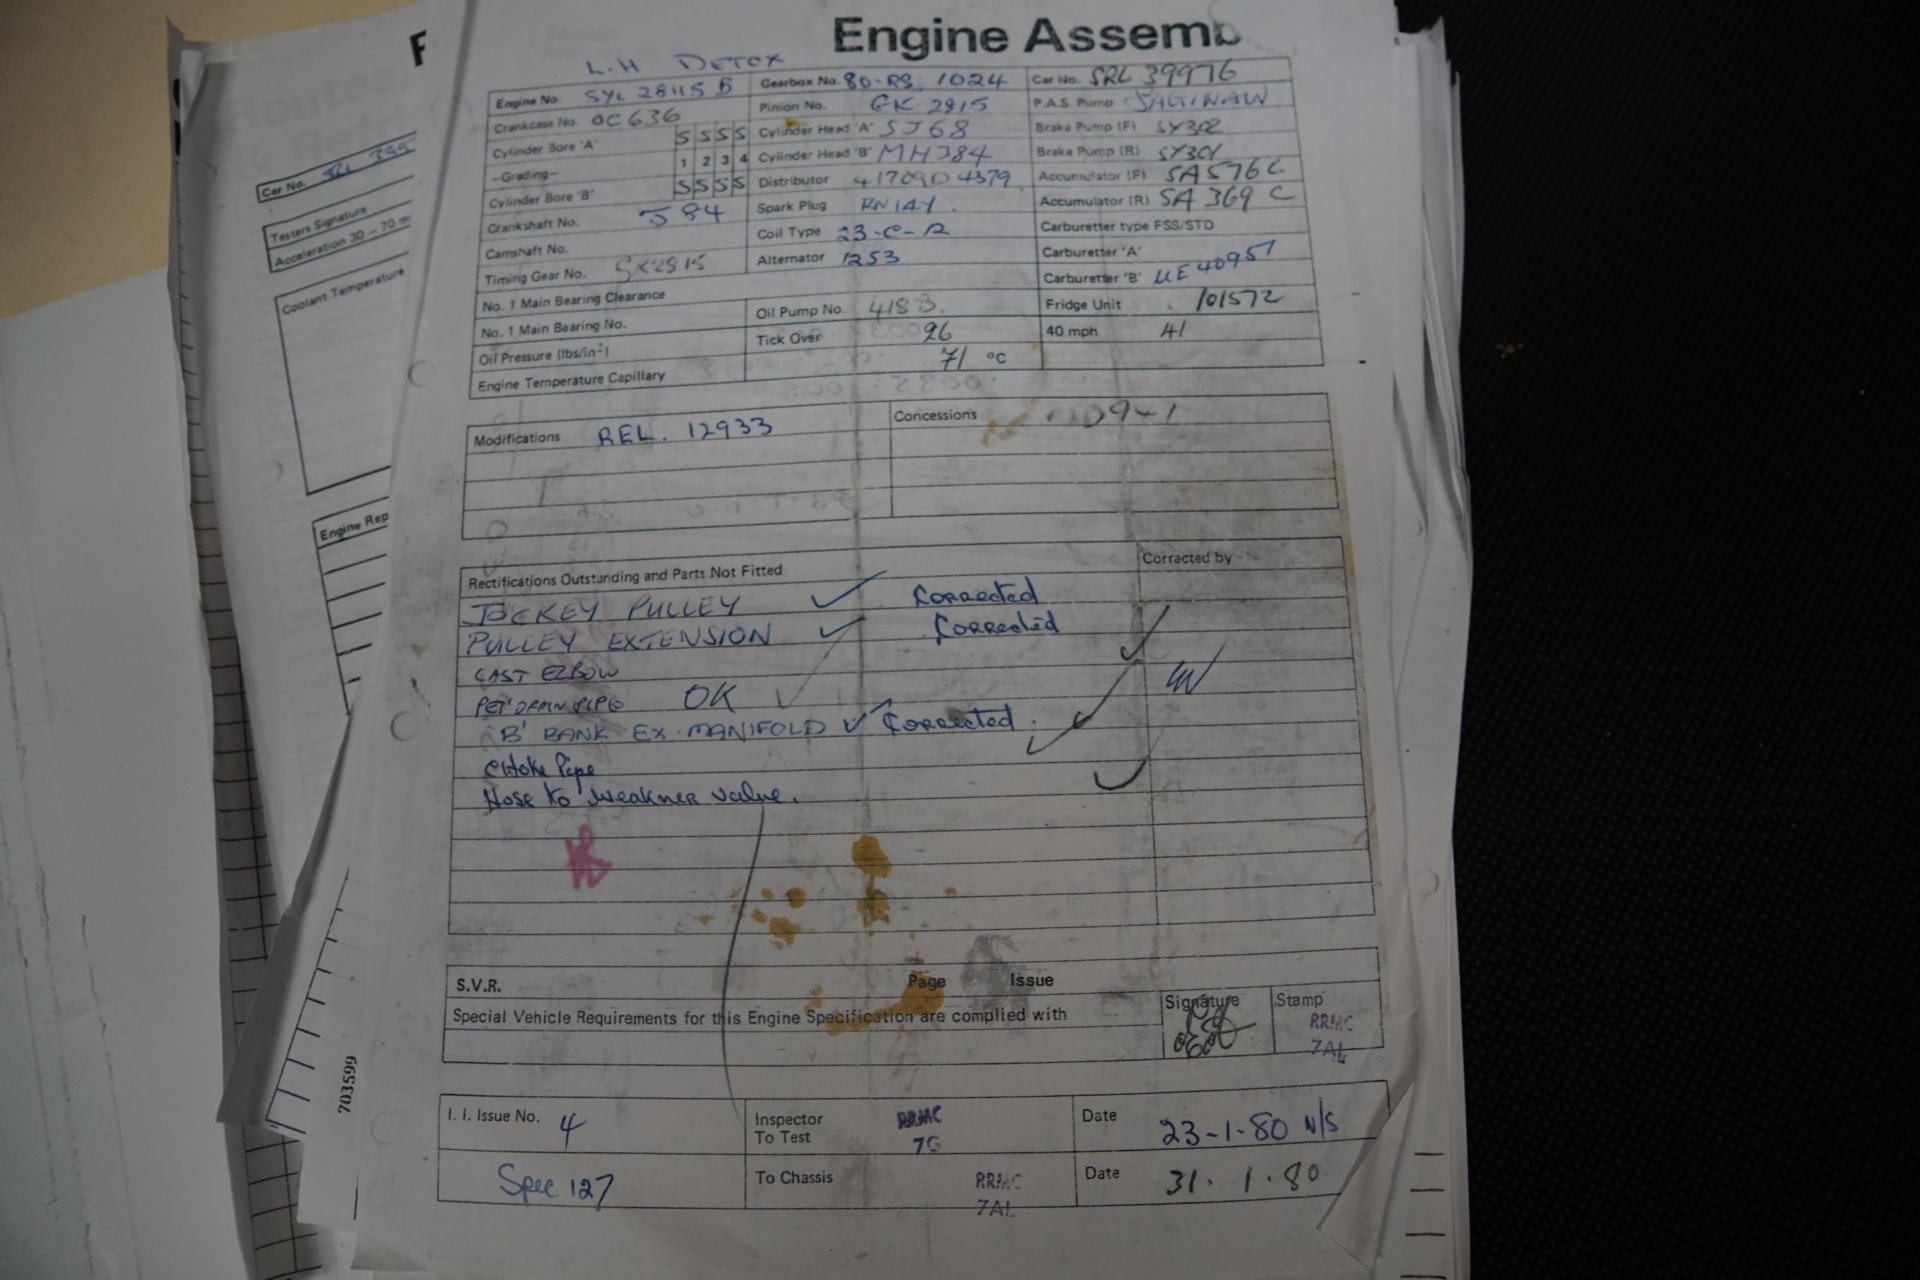 Engine Assemb
L.H DETOX
Engine No. SYL 28115 B Gearbox No. 80-RS 1024 Car No. SRL 39976
Crankcase No. OC636 Pinion No. GK 2815 P.A.S. Pump SAGINAW
Cylinder Bore 'A' S S S S Cylinder Head 'A' SJ68 Brake Pump (F) SY302
-Grading- 1 2 3 4 Cylinder Head 'B' MH384 Brake Pump (R) SY301
Cylinder Bore 'B' S S S S Distributor 41709D 4379 Accumulator (F) SA576C
Crankshaft No. J84 Spark Plug RN14Y. Accumulator (R) SA 369 C
Camshaft No. Coil Type 23-C-12 Carburetter type FSS/STD
Timing Gear No. GK2815 Alternator 1253 Carburetter 'A'
No. 1 Main Bearing Clearance Carburetter 'B' UE40957
No. 1 Main Bearing No. Oil Pump No. 418 B. Fridge Unit 101572
Oil Pressure (lbs/in²) Tick Over 26 40 mph 41
Engine Temperature Capillary 71 °C
Modifications REL. 12933 Concessions
Rectifications Outstanding and Parts Not Fitted Corrected by
JOCKEY PULLEY ✓ Corrected
PULLEY EXTENSION ✓ Corrected
CAST ELBOW
PET DRAIN PIPE OK
'B' BANK EX. MANIFOLD ✓ Corrected.
Choke Pipe
Hose to weakner valve.
S.V.R. Page Issue
Special Vehicle Requirements for this Engine Specification are complied with Signature Stamp
RRMC
7AL
I. I. Issue No. 4 Inspector To Test RRMC 7G Date 23-1-80 N/S
Spec 127 To Chassis RRMC 7AL Date 31.1.80
F
Car No. SRL 399
Testers Signature
Acceleration 30 – 70 m
Coolant Temperature
Engine Rep
703599